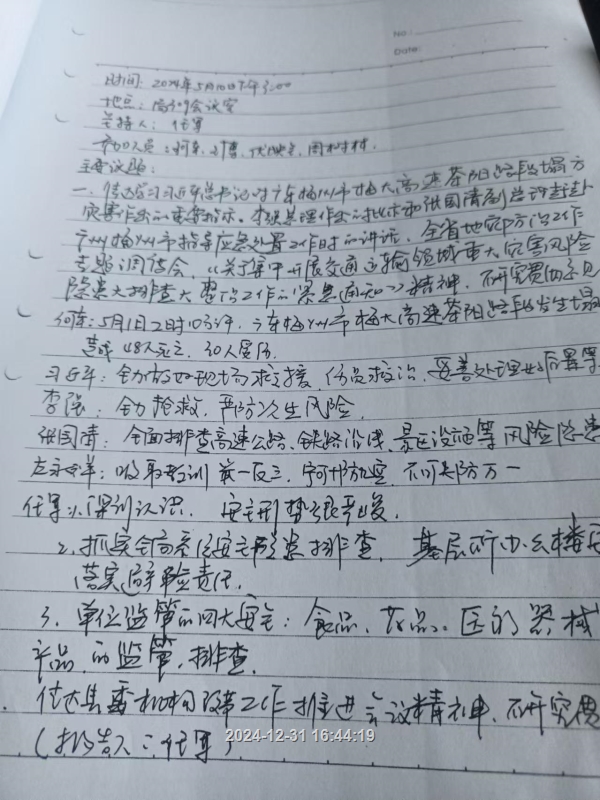 No:
Date:
时间：2024年5月10日下午3:00
地点：局309会议室
主持人：任军
参加人员：何东、
主要议题：
一、传达学习习近平总书记对广东梅州市梅大高速茶阳路段塌方
灾害作出的重要指示。李强总理作出的批示和张国清副总理赶赴
广州梅州市指导应急处置工作时的讲话、全省地灾防治工作
专题调度会、《关于集中开展交通运输领域重大灾害风险
隐患大排查大整治工作的紧急通知》精神，研究贯彻意见
何东：5月1日2时10分许，广东梅州市梅大高速茶阳路段发生塌
造成48人死亡，30人受伤。
习近平：全力做好现场救援、伤员救治，妥善处理好后果等
李强：全力抢救，严防次生风险
张国清：全面排查高速公路、铁路沿线、景区设施等风险隐患
吸取教训 举一反三，宁可十防九空，不可失防万一
任军：1、深刻认识，安全形势很严峻。
2、抓实全局系统安全隐患排查，基层所办公楼
落实避险责任。
3、单位监管的四大安全：食品、药品、医疗器械
产品的监管，排查。
传达县委机构改革工作推进会议精神，研究贯
（报告人：任军）
2024-12-31 16:44:19